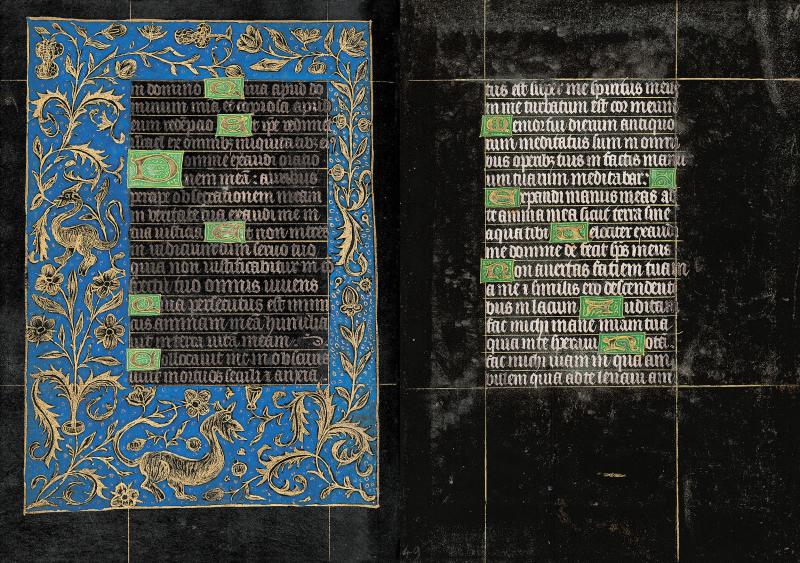 in domino Quia apud do
minum mia et copiosa apud
eum redēpcio Et ipē redimet
israel ex omnib; iniquitatib; ei
Domine exaudi oratio
nem meā: aurib;
percipe obsecrationem meam
in veritate tua exaudi me in
tua iusticia Et non intres
in iudicium cum servo tuo
quia non iustificabitur in co
spectu tuo omnis vivens
Quia persecutus est inimi
cus animam meā humilia
vit in terra vitā meam
Collocavit me in obscuris
sicut mortuos seculi et anxia
tus est super me spiritus meus
in me turbatum est cor meum
Memor fui dierum antiquo
rum meditatus sum in omni
bus operib; tuis in factis manu
um tuarum meditabar:
Expandi manus meas ad
te anima mea sicut terra sine
aqua tibi Velociter exaudi
me domine defecit sp̄s meus
Non avertas faciem tuam
a me et similis ero descendenti
bus in lacum Auditam
fac michi mane miam tuā
quia in te speravi Notā
fac michi viam in qua am
bulem quia ad te levavi ani
49